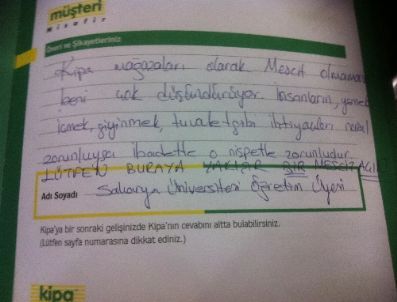 müşteri
Misafir
Öneri ve Şikayetleriniz
Kipa mağazaları olarak Mescit olmaması
beni çok düşündürüyor. İnsanların, yemek
içmek, giyinmek, tuvalet gibi ihtiyaçları nasıl
zorunluysa ibadette o nispette zorunludur.
LÜTFEN BURAYA YAKIŞIR BİR MESCİT AÇI
Adı Soyadı
Sakarya Üniversitesi Öğretim Üyesi
Kipa'ya bir sonraki gelişinizde Kipa'nın cevabını altta bulabilirsiniz.
(Lütfen sayfa numarasına dikkat ediniz.)
kipa